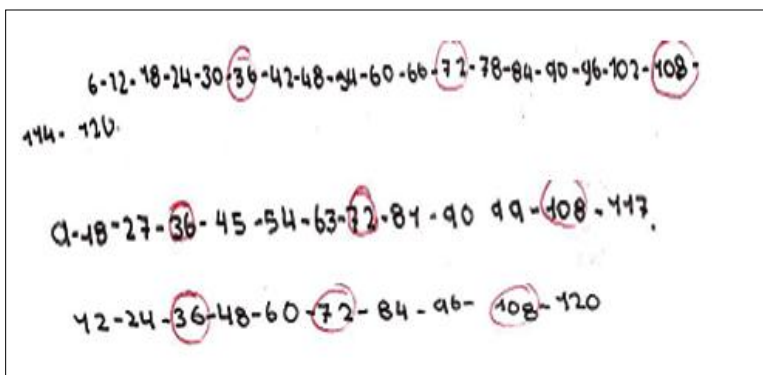 6-12-18-24-30-36-42-48-54-60-66-72-78-84-90-96-102-108-
114-120.
9-18-27-36-45-54-63-72-81-90 99-108-117.
12-24-36-48-60-72-84-96-108-120